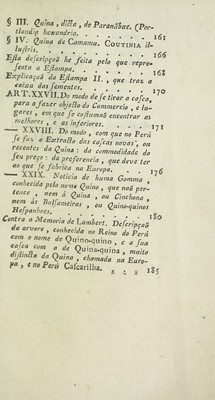 § III. Quina, dicta, de Paranábuc. (Por-
tlandia hexandria. . . . . . . . 161
§ IV. Quina de Camamu. COUTINIA il-
lustris. . . . . . . . . 166
Esta descripçaõ he feita pelo que repre-
senta a Estampa. . . . . . . 168
Explicaçaõ da Estampa II., que traz a
caixa das sementes. . . . . . 170
ART. XXVII. Do modo de se tirar a casca,
para a fazer objecto do Commercio, e lu-
gares, em que se costumaõ encontrar as
melhores, e as inferiores. . . . 171
— XXVIII. Do modo, com que no Perú
se faz o Extracto das cascas novas, ou
recentes da Quina: da commodidade do
seu preço: da preferencia, que deve ter
ao que se fabrica na Europa. . . 176
— XXIX. Noticia de huma Gomma,
conhecida pelo nome Quino, que naõ per-
tence, nem á Quina, ou Cinchona,
nem ás Balsameiras, ou Quino-quinos
Hespanhoes. . . . . . . . . 180
Contra a Memoria de Lambert. Descripçaõ
da arvore, conhecida no Reino do Perú
com o nome de Quino-quino, e a sua
casca com a de Quina-quina, muito
distincta da Quina, chamada na Euro-
pa, e no Perú Cascarilha. 185